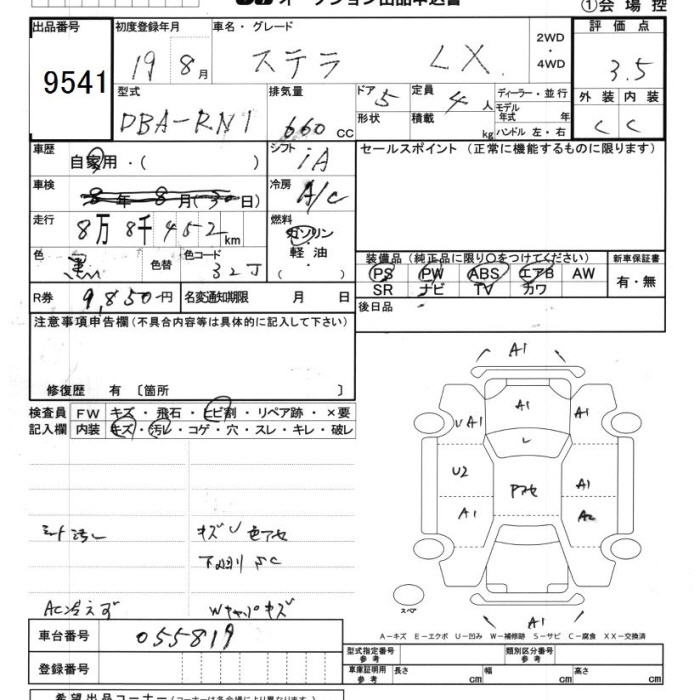 オークション出品申込書
①会場控
出品番号
9541
初度登録年月
19 8月
車名・グレード
ステラ LX
2WD
・
4WD
評価点
3.5
型式
DBA-RN1
排気量
660 CC
ドア 5
形状
定員 4人
積載 kg
ディーラー・並行
モデル年式 年
ハンドル 左・右
外装 内装
C C
車歴
自家用・( )
シフト
iA
セールスポイント (正常に機能するものに限ります)
車検
8年8月(30日)
冷房
A/C
走行
8万8千452km
燃料
ガソリン
軽油
( )
色
黒
色替
色コード
32J
装備品 (純正品に限り○をつけてください)
PS PW ABS エアB AW
SR ナビ TV カワ
新車保証書
有・無
R券
9,850円
名変通知期限 月 日
後日品
注意事項申告欄(不具合内容等は具体的に記入して下さい)
修復歴 有 〔箇所 〕
検査員
記入欄
FW キズ・飛石・ヒビ割・リペア跡・×要
内装 キズ・汚レ・コゲ・穴・スレ・キレ・破レ
シート汚レ
キズU色アセ
下廻りSC
AC冷えず
WキャパキズA1
A1
UA1
A1
U2
A1
A1
A2
Pアセ
A1
スペア
A-キズ E-エクボ U-凹み W-補修跡 S-サビ C-腐食 XX-交換済
車台番号
055819
登録番号
型式指定番号
参考
類別区分番号
参考
車庫証明用
参考
長さ cm
幅 cm
高さ cm
希望出品コーナー(コーナーは各会場により異なります)